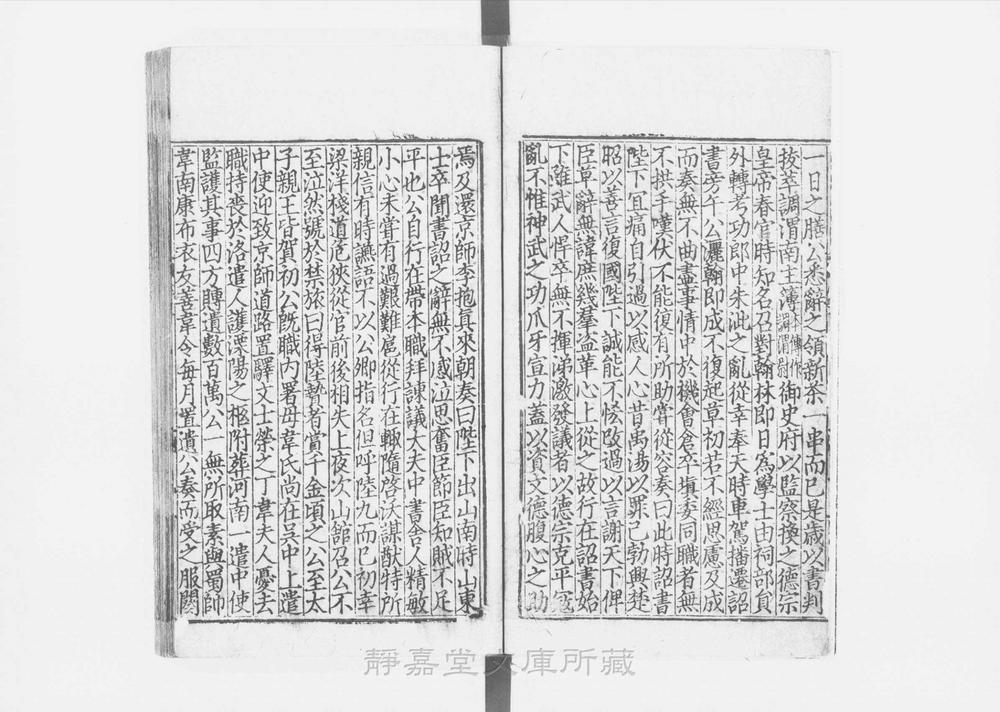 一日之膳公悉辭之領新茶一串而已是歲以書判
拔萃調渭南主簿本傳作調渭尉御史府以監察換之德宗
皇帝春宮時知名召對翰林即日為學士由祠部員
外轉考功郎中朱泚之亂從幸奉天時車駕播遷詔
書旁午公灑翰即成不復起草初若不經思慮及成
而奏無不曲盡事情中於機會倉卒填委同職者無
不拱手嘆伏不能復有所助嘗從容奏曰此時詔書
陛下宜痛自引過以感人心昔禹湯以罪己勃興楚
昭以善言復國陛下誠能不悋改過以言謝天下俾
臣草辭無諱庶幾羣盜革心上從之故行在詔書始
下雖武人悍卒無不揮涕激發議者以德宗克平寇
亂不惟神武之功爪牙宣力蓋以資文德腹心之助
焉及還京師李抱眞來朝奏曰陛下出山南時山東
士卒聞書詔之辭無不感泣思奮臣節臣知賊不足
平也公自行在帶本職拜諫議大夫中書舍人精敏
小心未嘗有過艱難扈從行在輙隨啓沃謀猷特所
親信有時讌語不以公卿指名但呼陸九而已初幸
梁洋棧道危狹從官前後相失上夜次山館召公不
至泣然號於禁旅曰得陸贄者賞千金頃之公至太
子親王皆賀初公旣職內署母韋氏尚在吳中上遣
中使迎致京師道路置驛文士榮之丁韋夫人憂去
職持喪於洛遣人護溧陽之柩附葬河南一遣中使
監護其事四方賻遺數百萬公一無所取素與蜀帥
韋南康布衣友善韋令每月置遺公奏而受之服闋
靜嘉堂文庫所藏